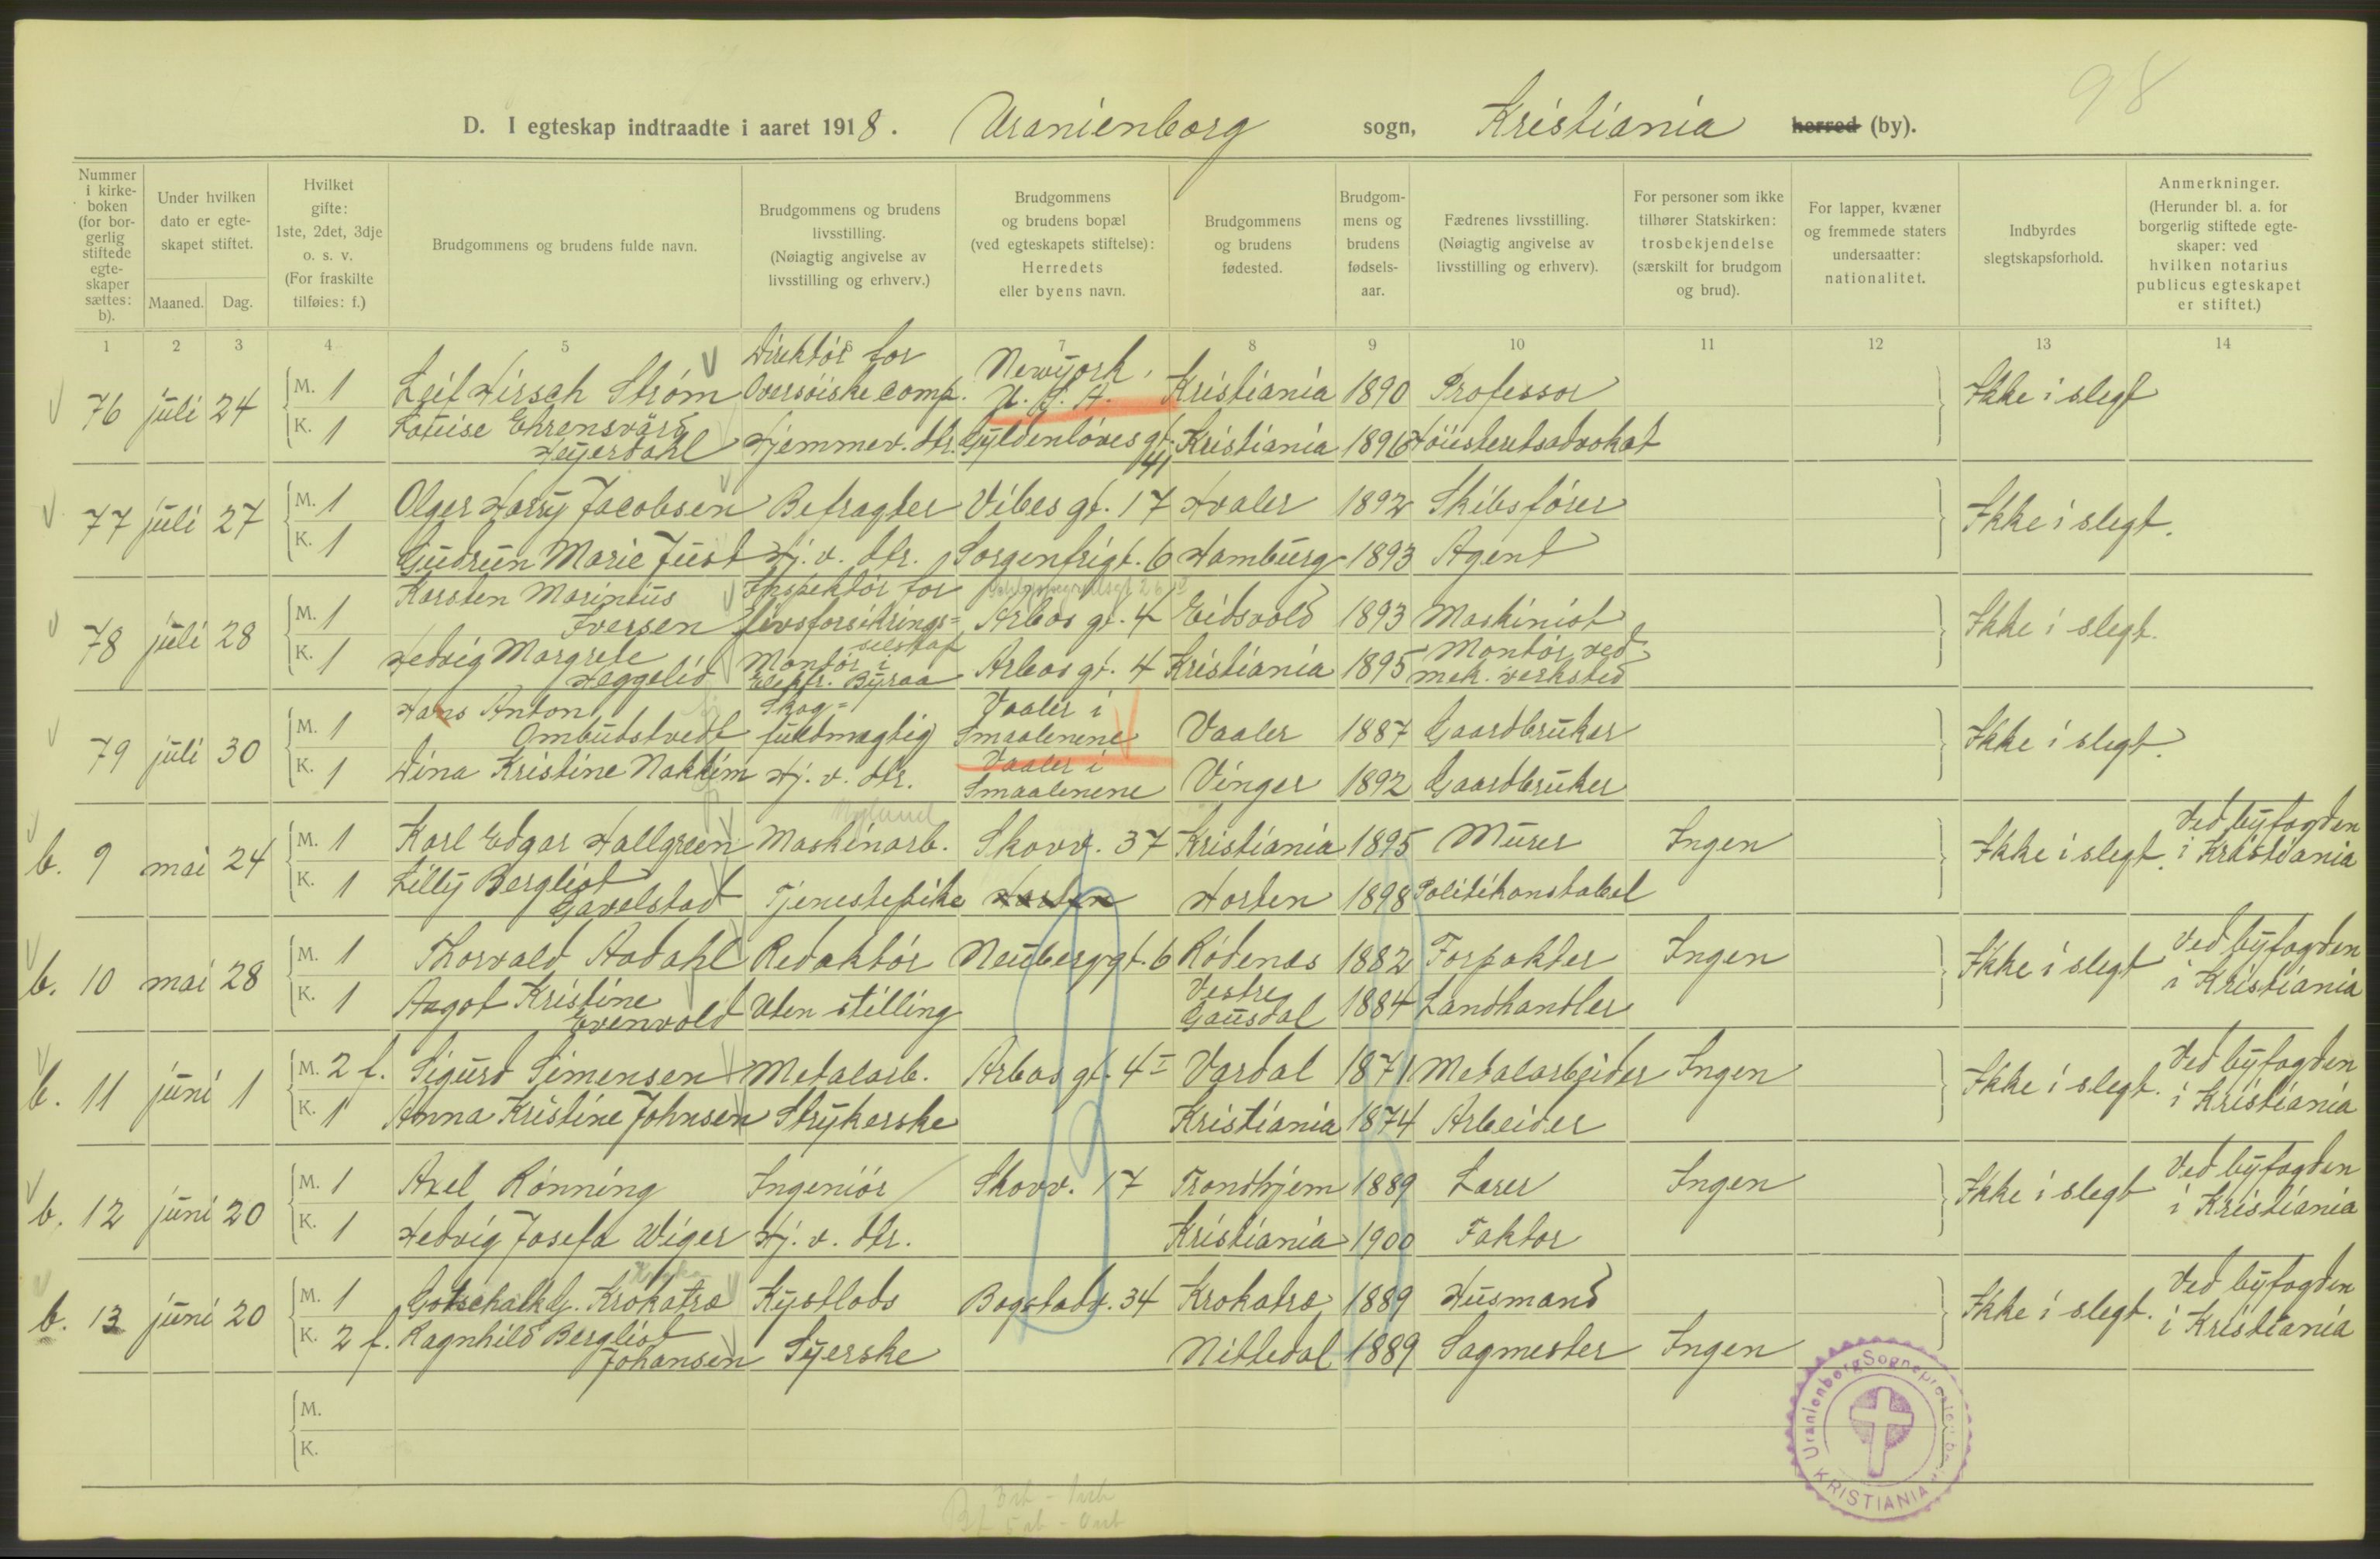 98
D. I egteskap indtraadte i aaret 1918. Uranienborg sogn, Kristiania herred (by).
Nummer i kirkeboken (for borgerlig stiftede egteskaper sættes: b).
Under hvilken dato er egteskapet stiftet.
Maaned. Dag.
Hvilket gifte: 1ste, 2det, 3dje o. s. v. (For fraskilte tilføies: f.)
Brudgommens og brudens fulde navn.
Brudgommens og brudens livsstilling. (Nøiagtig angivelse av livsstilling og erhverv.)
Brudgommens og brudens bopæl (ved egteskapets stiftelse): Herredets eller byens navn.
Brudgommens og brudens fødested.
Brudgommens og brudens fødselsaar.
Fædrenes livsstilling. (Nøiagtig angivelse av livsstilling og erhverv).
For personer som ikke tilhører Statskirken: trosbekjendelse (særskilt for brudgom og brud).
For lapper, kvæner og fremmede staters undersaatter: nationalitet.
Indbyrdes slegtskapsforhold.
Anmerkninger. (Herunder bl. a. for borgerlig stiftede egteskaper: ved hvilken notarius publicus egteskapet er stiftet.)
1 2 3 4 5 6 7 8 9 10 11 12 13 14
76 juli 24 M. 1 Leif Hirsch Strøm Direktør for Oversøiske comp. Newyork, U. S. A. Kristiania 1890 Professor Ikke i slegt
K. 1 Louise Ehrensvärd Heyerdahl Hjemmev. dtr. Gyldenløves gt. 41 Kristiania 1896 Høiesteretsadvokat
77 juli 27 M. 1 Olger Harry Jacobsen Befragter Vibes gt. 17 Hvaler 1892 Skibsfører Ikke i slegt.
K. 1 Gudrun Marie Just Hj. v. dtr. Sorgenfrigt. 6 Hamburg 1893 Agent
78 juli 28 M. 1 Karsten Marinius Iversen Inspektør for livsforsikrings=selskap Arbos gt. 4 Eidsvold 1893 Maskinist Ikke i slegt.
K. 1 Hedvig Margrete Heggelid Montør i Elektr. Byraa Arbos gt. 4 Kristiania 1895 Montør ved mek. verksted
79 juli 30 M. 1 Hans Anton Ombudstvedt Skog=fuldmægtig Vaaler i Smaalenene Vaaler 1887 Gaardbruker Ikke i slegt.
K. 1 Dina Kristine Nakkim Hj. v. dtr. Vaaler i Smaalenene Vinger 1892 Gaardbruker
Nyland
b. 9 mai 24 M. 1 Karl Edgar Hallgreen Maskinarb. Skovv. 37 Kristiania 1895 Murer Ingen Ikke i slegt. Ved byfogden i Kristiania
K. 1 Lilly Bergliot Gavelstad Tjenestepike Horten Horten 1898 Politikonstabel
b. 10 mai 28 M. 1 Thorvald Aadahl Redaktør Neuberggt. 6 Rødenes 1882 Forpakter Ingen Ikke i slegt Ved byfogden i Kristiania
K. 1 Aagot Kristine Evenvold Uten stilling Vestre Gausdal 1884 Landhandler
b. 11 juni 1 M. 2 f. Sigurd Simensen Metalarb. Arbos gt. 4 I Vardal 1871 Metalarbeider Ingen Ikke i slegt. Ved byfogden i Kristiania
K. 1 Anna Kristine Johnsen Strykerske Kristiania 1874 Arbeider
b. 12 juni 20 M. 1 Axel Rønning Ingeniør Skovv. 17 Trondhjem 1889 Lærer Ingen Ikke i slegt Ved byfogden i Kristiania
K. 1 Hedvig Josefa Wiger Hj. v. dtr. Kristiania 1900 Faktor
b. 13 juni 20 M. 1 Gotschalk G. Krokatrø Kystlods Bogstadv. 34 Krokatrø 1889 Husmand Ikke i slegt. Ved byfogden i Kristiania
K. 2 f. Ragnhild Bergliot Johansen Syerske Nittedal 1889 Sagmester Ingen
M.
K.
Uranienborg Sogneprestembede
KRISTIANIA